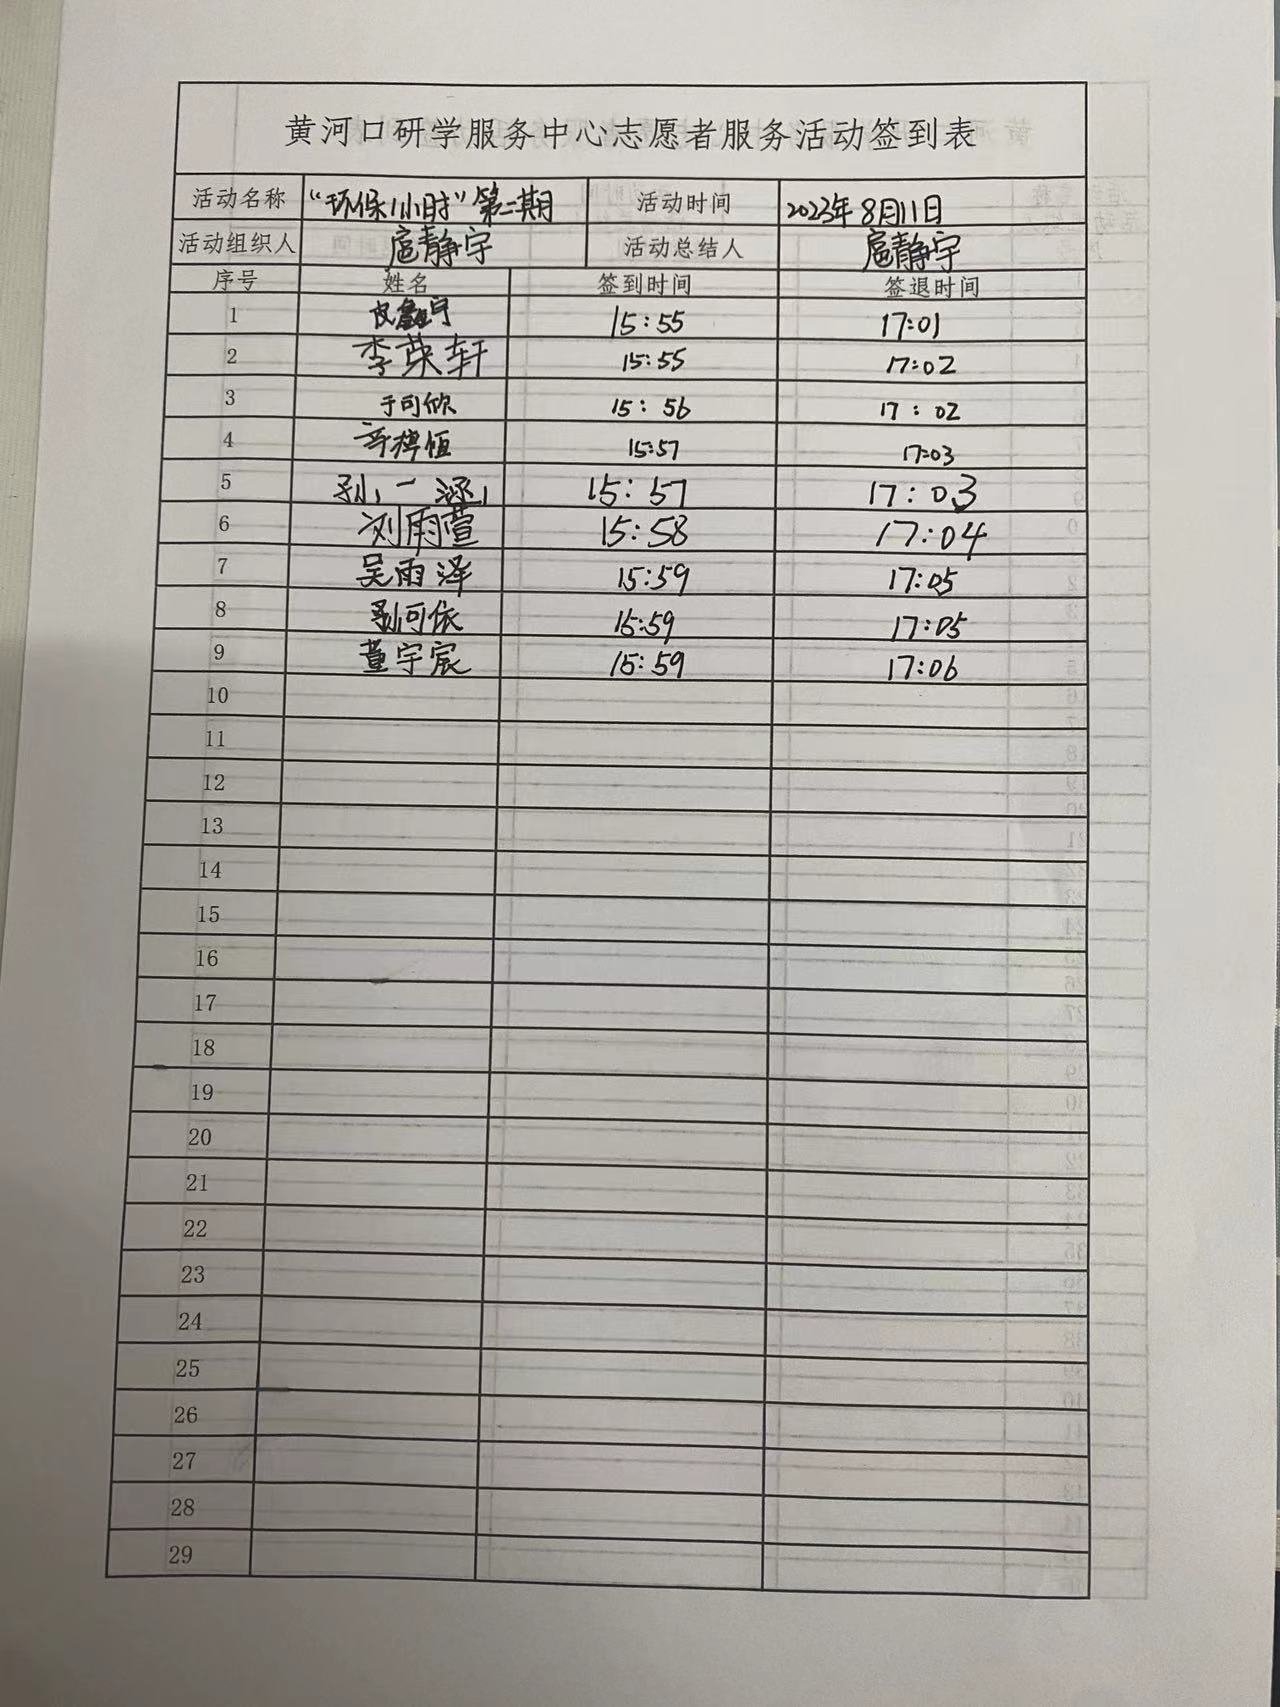 黄河口研学服务中心志愿者服务活动签到表
活动名称 “环保1小时”第二期 活动时间 2023年8月11日
活动组织人 扈静宇 活动总结人 扈静宇
序号 姓名 签到时间 签退时间
1 15:55 17:01
2 李荣轩 15:55 17:02
3 于可欣 15:56 17:02
4 15:57 17:03
5 孙一涵 15:57 17:03
6 刘雨萱 15:58 17:04
7 吴雨泽 15:59 17:05
8 孙可依 15:59 17:05
9 董宇宸 15:59 17:06
10
11
12
13
14
15
16
17
18
19
20
21
22
23
24
25
26
27
28
29